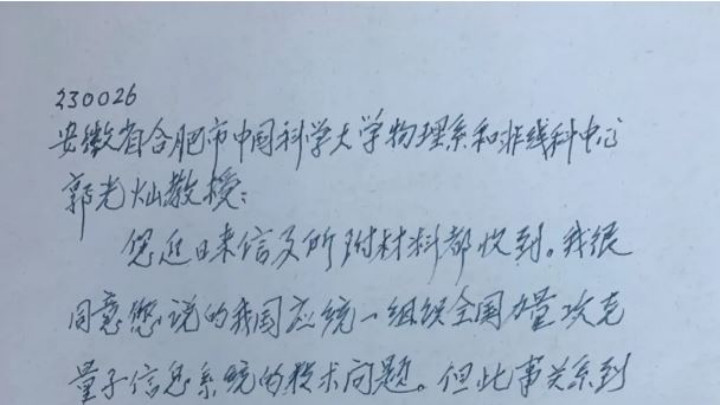 230026
安徽省合肥市中国科学大学物理系和非线科中心
郭光灿教授:
您近日来信及所附材料都收到。我很
同意您说的我国应统一组织全国力量攻克
量子信息系统的技术问题。但此事关系到